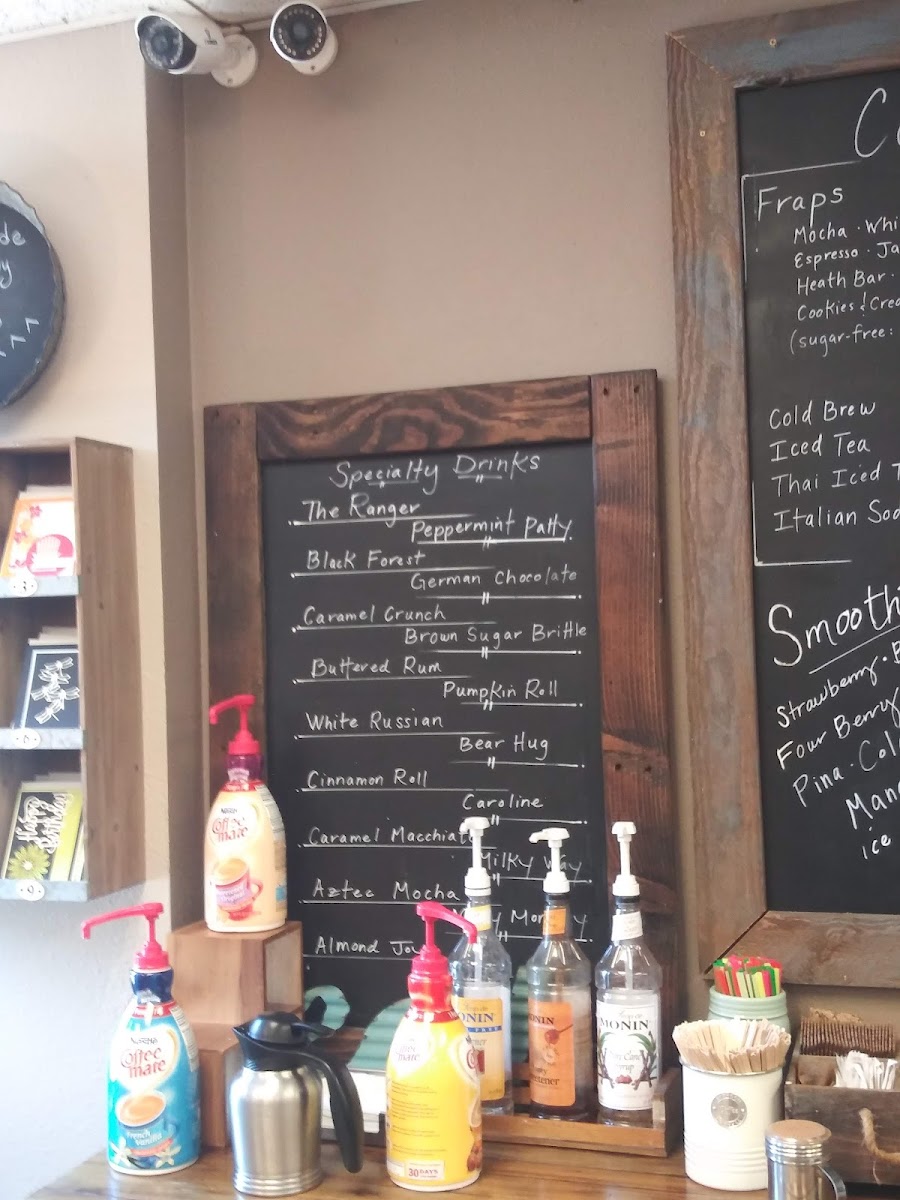 Specialty Drinks
The Ranger
Peppermint Patty
Black Forest
German Chocolate
Caramel Crunch
Brown Sugar Brittle
Buttered Rum
Pumpkin Roll
White Russian
Bear Hug
Cinnamon Roll
Caroline
Caramel Macchiato
Milky Way
Aztec Mocha
Almond Joy
Fraps
Mocha · Whi
Espresso · Ja
Heath Bar ·
Cookies & Crea
(sugar-free:
Cold Brew
Iced Tea
Thai Iced T
Italian Soo
Smoothi
Strawberry · B
Four Berry
Pina · Col
Man
ice
Nestle
Coffee mate
Nestle
Coffee mate
French Vanilla
Coffee mate
30 DAYS
MONIN
MONIN
MONIN
Syrup
Happy